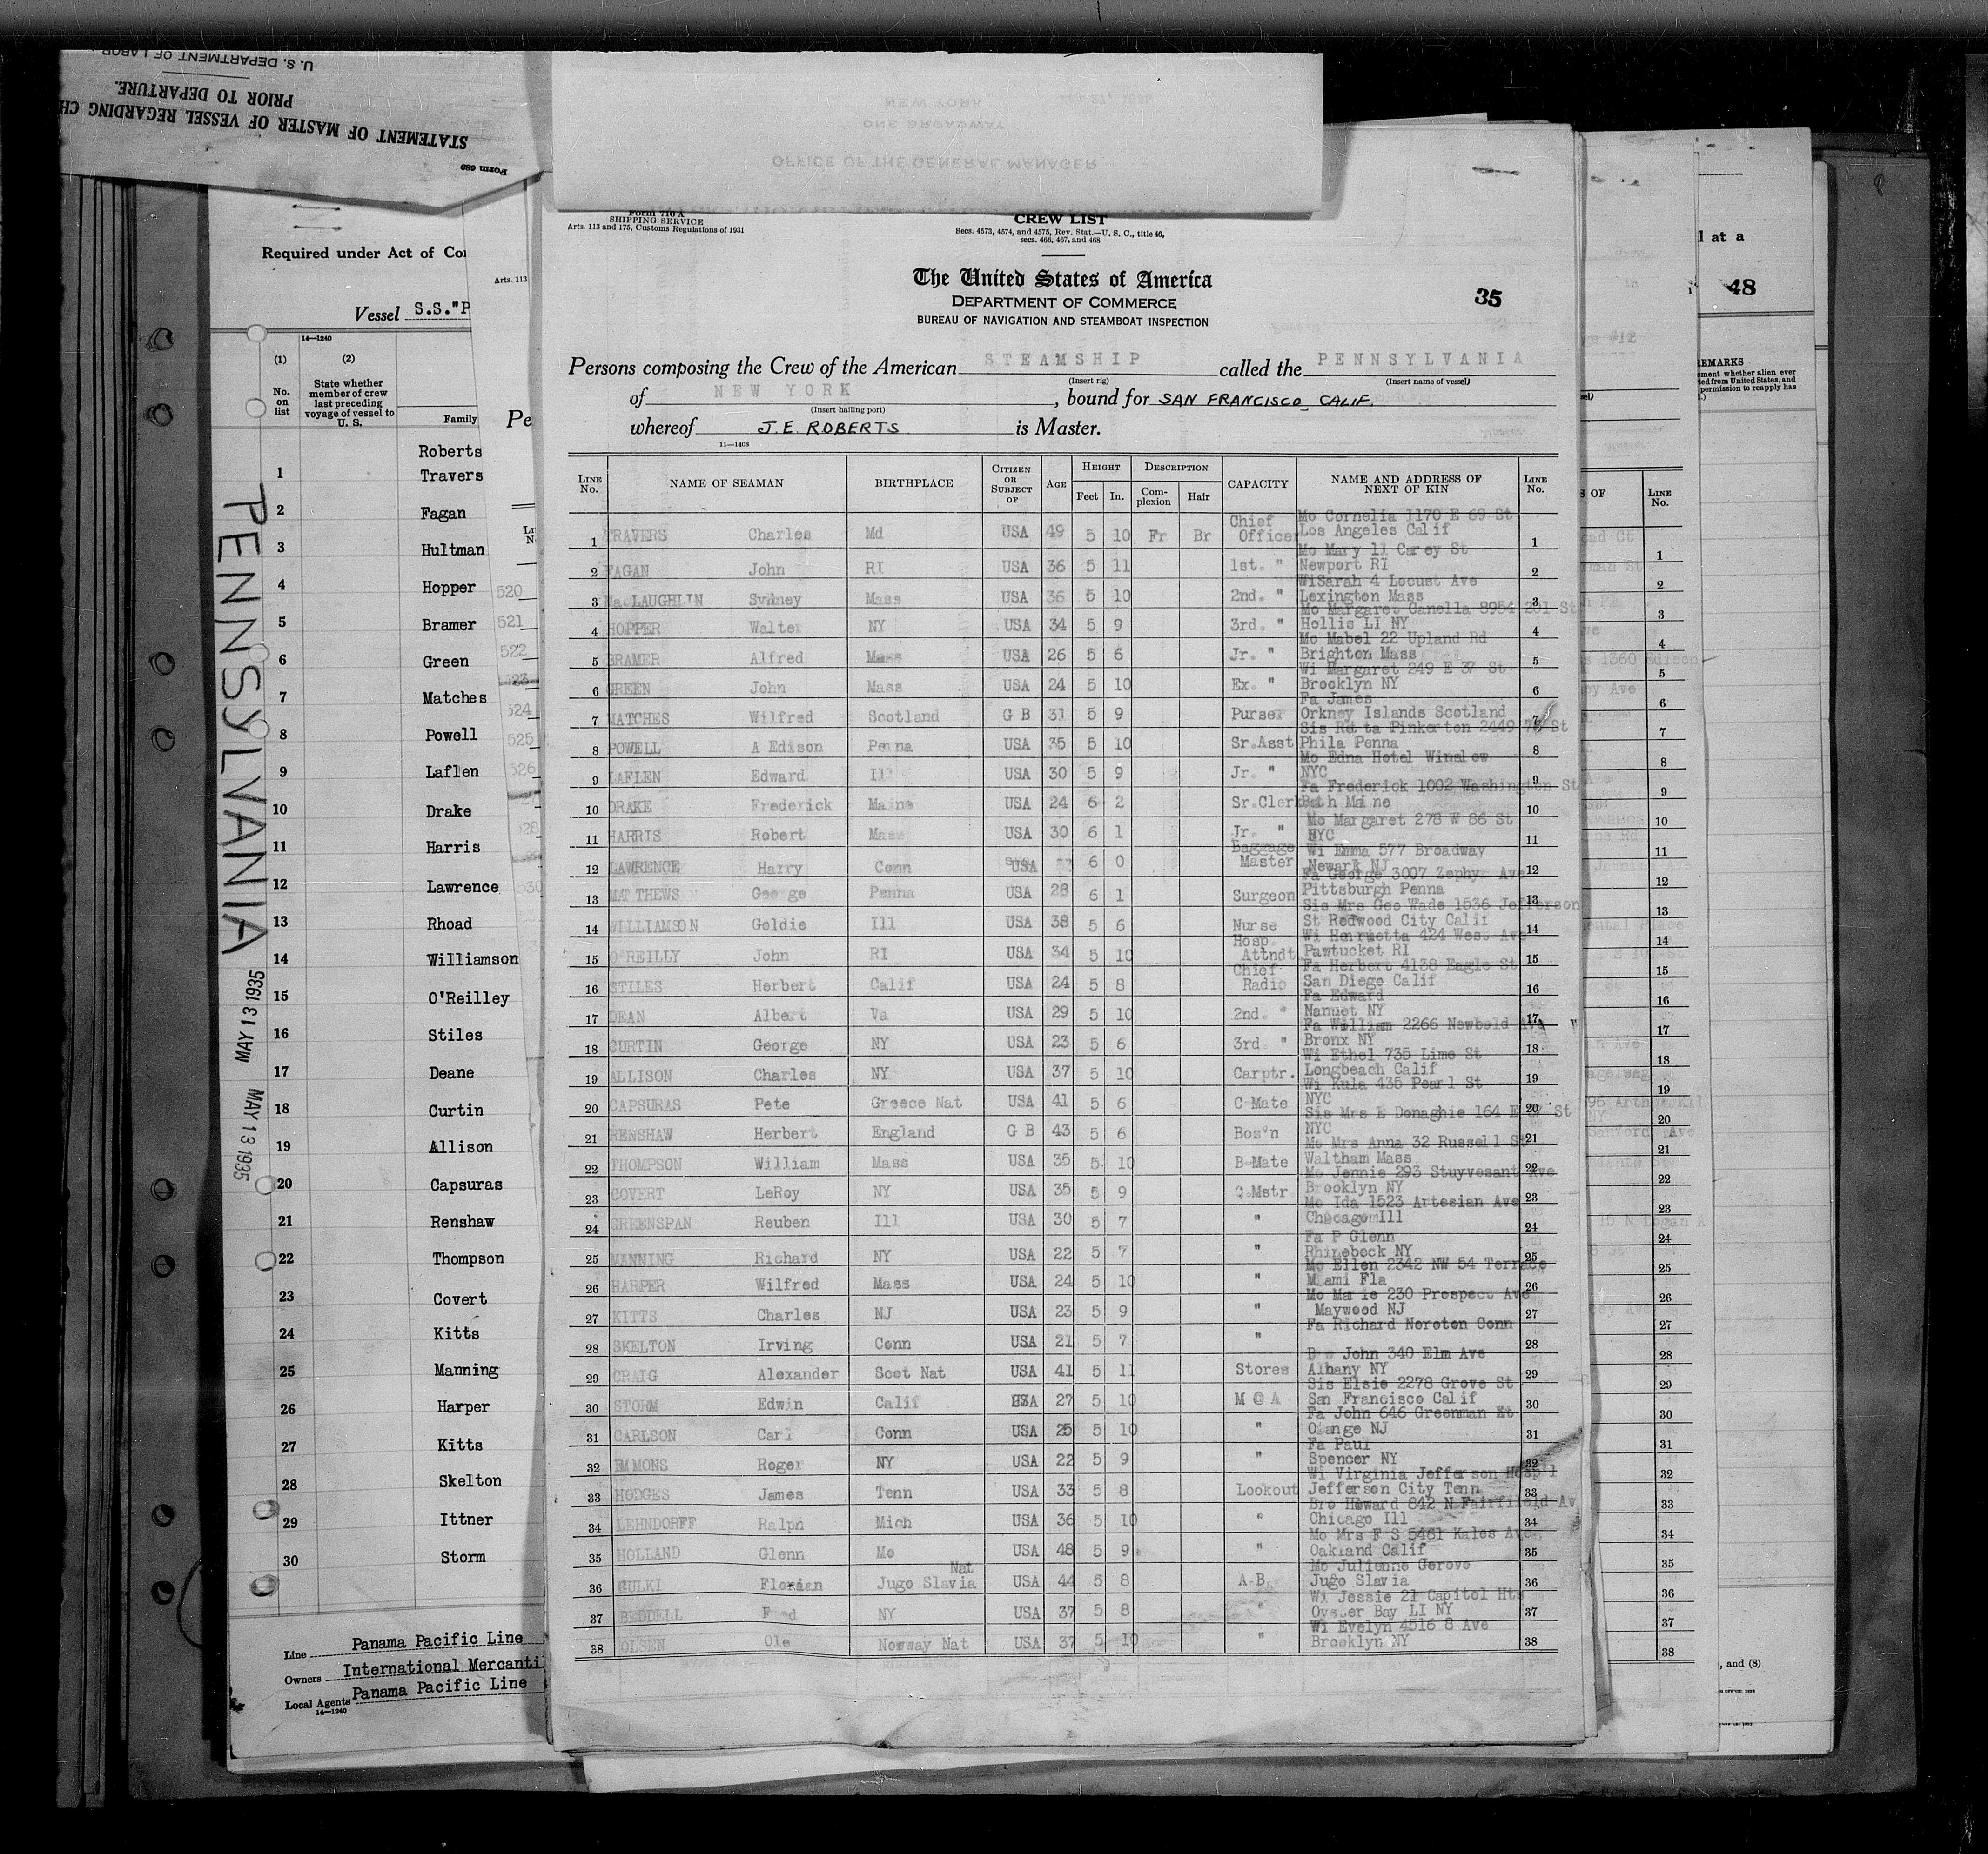 U. S. DEPARTMENT OF LABOR
STATEMENT OF MASTER OF VESSEL REGARDING CH
PRIOR TO DEPARTURE.
Form 689
OFFICE OF THE GENERAL MANAGER
ONE BROADWAY
NEW YORK
Required under Act of Co
Vessel S.S."P
14—1240
(1)
(2)
No. on list
State whether member of crew last preceding voyage of vessel to U. S.
Family
Roberts
1 Travers
2 Fagan
3 Hultman
4 Hopper
5 Bramer
6 Green
7 Matches
8 Powell
9 Laflen
10 Drake
11 Harris
12 Lawrence
13 Rhoad
14 Williamson
15 O'Reilley
16 Stiles
17 Deane
18 Curtin
19 Allison
20 Capsuras
21 Renshaw
22 Thompson
23 Covert
24 Kitts
25 Manning
26 Harper
27 Kitts
28 Skelton
29 Ittner
30 Storm
PENNSYLVANIA
MAY 13 1935
MAY 13 1935
Line Panama Pacific Line
Owners International Mercanti
Local Agents Panama Pacific Line
14—1240
Arts. 113
Pe
520
521
522
524
525
526
Form 710 A
SHIPPING SERVICE
Arts. 113 and 175, Customs Regulations of 1931
CREW LIST
Secs. 4573, 4574, and 4575, Rev. Stat.—U. S. C., title 46,
secs. 466, 467, and 468
The United States of America
DEPARTMENT OF COMMERCE
BUREAU OF NAVIGATION AND STEAMBOAT INSPECTION
35
Persons composing the Crew of the American STEAMSHIP called the PENNSYLVANIA
(Insert rig) (Insert name of vessel)
of NEW YORK, bound for SAN FRANCISCO CALIF.
(Insert hailing port)
whereof J.E. ROBERTS is Master.
11—1408
LINE No. NAME OF SEAMAN BIRTHPLACE CITIZEN OR SUBJECT OF AGE HEIGHT Feet In. DESCRIPTION Complexion Hair CAPACITY NAME AND ADDRESS OF NEXT OF KIN LINE No.
1 TRAVERS Charles Md USA 49 5 10 Fr Br Chief Officer Mo Cornelia 1170 E 69 St Los Angeles Calif 1
2 FAGAN John RI USA 36 5 11 1st. " Mo Mary 11 Carey St Newport RI 2
3 MacLAUGHLIN Sydney Mass USA 36 5 10 2nd. " Wi Sarah 4 Locust Ave Lexington Mass 3
4 HOPPER Walter NY USA 34 5 9 3rd. " Mo Margaret Canella 8954 201 St Hollis LI NY 4
5 BRAMER Alfred Mass USA 26 5 6 Jr. " Mo Mabel 22 Upland Rd Brighton Mass 5
6 GREEN John Mass USA 24 5 10 Ex. " Wi Margaret 249 E 37 St Brooklyn NY 6
7 MATCHES Wilfred Scotland G B 31 5 9 Purser Fa James Orkney Islands Scotland 7
8 POWELL A Edison Penna USA 35 5 10 Sr.Asst Sis Pinkerton 2449 St Phila Penna 8
9 LAFLEN Edward Ill USA 30 5 9 Jr. " Mo Edna Hotel Winslow NYC 9
10 DRAKE Frederick Maine USA 24 6 2 Sr.Clerk Fa Frederick 1002 Washington St Bath Maine 10
11 HARRIS Robert Mass USA 30 6 1 Jr. " Mo Margaret 278 W 86 St NYC 11
12 LAWRENCE Harry Conn USA 6 0 Baggage Master Wi Emma 577 Broadway Newark NJ 12
13 MATTHEWS George Penna USA 28 6 1 Surgeon Fa George 3007 Zephyr Ave Pittsburgh Penna 13
14 WILLIAMSON Goldie Ill USA 38 5 6 Nurse Sis Mrs Geo Wade 1536 Jefferson St Redwood City Calif 14
15 O'REILLY John RI USA 34 5 10 Hosp. Attndt Wi Henrietta 424 West Ave Pawtucket RI 15
16 STILES Herbert Calif USA 24 5 8 Chief Radio Fa Herbert 4138 Eagle St San Diego Calif 16
17 DEAN Albert Va USA 29 5 10 2nd. " Fa Edward Nanuet NY 17
18 CURTIN George NY USA 23 5 6 3rd " Fa William 2266 Newbold Ave Bronx NY 18
19 ALLISON Charles NY USA 37 5 10 Carptr. Wi Ethel 735 Lime St Longbeach Calif 19
20 CAPSURAS Pete Greece Nat USA 41 5 6 C Mate Wi Kula 435 Pearl St NYC 20
21 RENSHAW Herbert England G B 43 5 6 Bos'n Sis Mrs E Donaghie 164 E St NYC 21
22 THOMPSON William Mass USA 35 5 10 B Mate Mo Mrs Anna 32 Russell St Waltham Mass 22
23 COVERT LeRoy NY USA 35 5 9 Q.Mstr Mo Jennie 293 Stuyvesant Ave Brooklyn NY 23
24 GREENSPAN Reuben Ill USA 30 5 7 " Mo Ida 1523 Artesian Ave Chicago Ill 24
25 MANNING Richard NY USA 22 5 7 " Fa P Glenn Rhinebeck NY 25
26 HARPER Wilfred Mass USA 24 5 10 " Mo Ellen 2342 NW 54 Terrace Miami Fla 26
27 KITTS Charles NJ USA 23 5 9 " Mo Marie 230 Prospect Ave Maywood NJ 27
28 SKELTON Irving Conn USA 21 5 7 " Fa Richard Noroton Conn 28
29 CRAIG Alexander Scot Nat USA 41 5 11 Stores Bro John 340 Elm Ave Albany NY 29
30 STORM Edwin Calif USA 27 5 10 M @ A Sis Elsie 2278 Grove St San Francisco Calif 30
31 CARLSON Carl Conn USA 25 5 10 " Fa John 646 Greenman Orange NJ 31
32 EMMONS Roger NY USA 22 5 9 " Fa Paul Spencer NY 32
33 HODGES James Tenn USA 33 5 8 Lookout Wi Virginia Jefferson Hosp'l Jefferson City Tenn 33
34 LEHNDORFF Ralph Mich USA 36 5 10 " Bro Howard 842 N Fairfield Av Chicago Ill 34
35 HOLLAND Glenn Mo USA 48 5 9 " Mo Mrs F S 5461 Kales Ave Oakland Calif 35
36 GULKI Florian Jugo Slavia Nat USA 44 5 8 A.B. Mo Julienne Gerovo Jugo Slavia 36
37 BEDDELL Fred NY USA 37 5 8 " Wi Jessie 21 Capitol Hts Oyster Bay LI NY 37
38 OLSEN Ole Norway Nat USA 37 5 10 " Wi Evelyn 4516 8 Ave Brooklyn NY 38
l at a
48
REMARKS
S OF
LINE No.
, and (8)